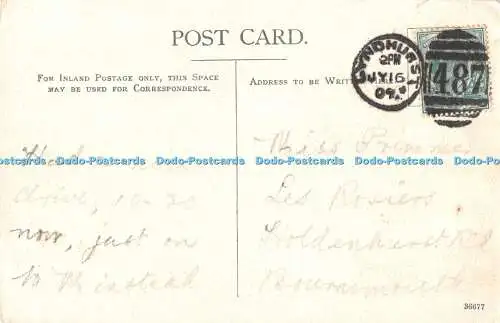 POST CARD.
FOR INLAND POSTAGE ONLY, THIS SPACE
MAY BE USED FOR CORRESPONDENCE.
ADDRESS TO BE WRITTEN
LYNDHURST
2PM
JY 16
09
487
Had
drive, 10-30
now, just on
to Minstead
Miss Primmer
Les Rosiers
Holdenhurst Rd
Bournemouth
Dodo-Postcards Dodo-Postcards Dodo-Postcards Dodo-Postcards Dodo-Postcards
36677